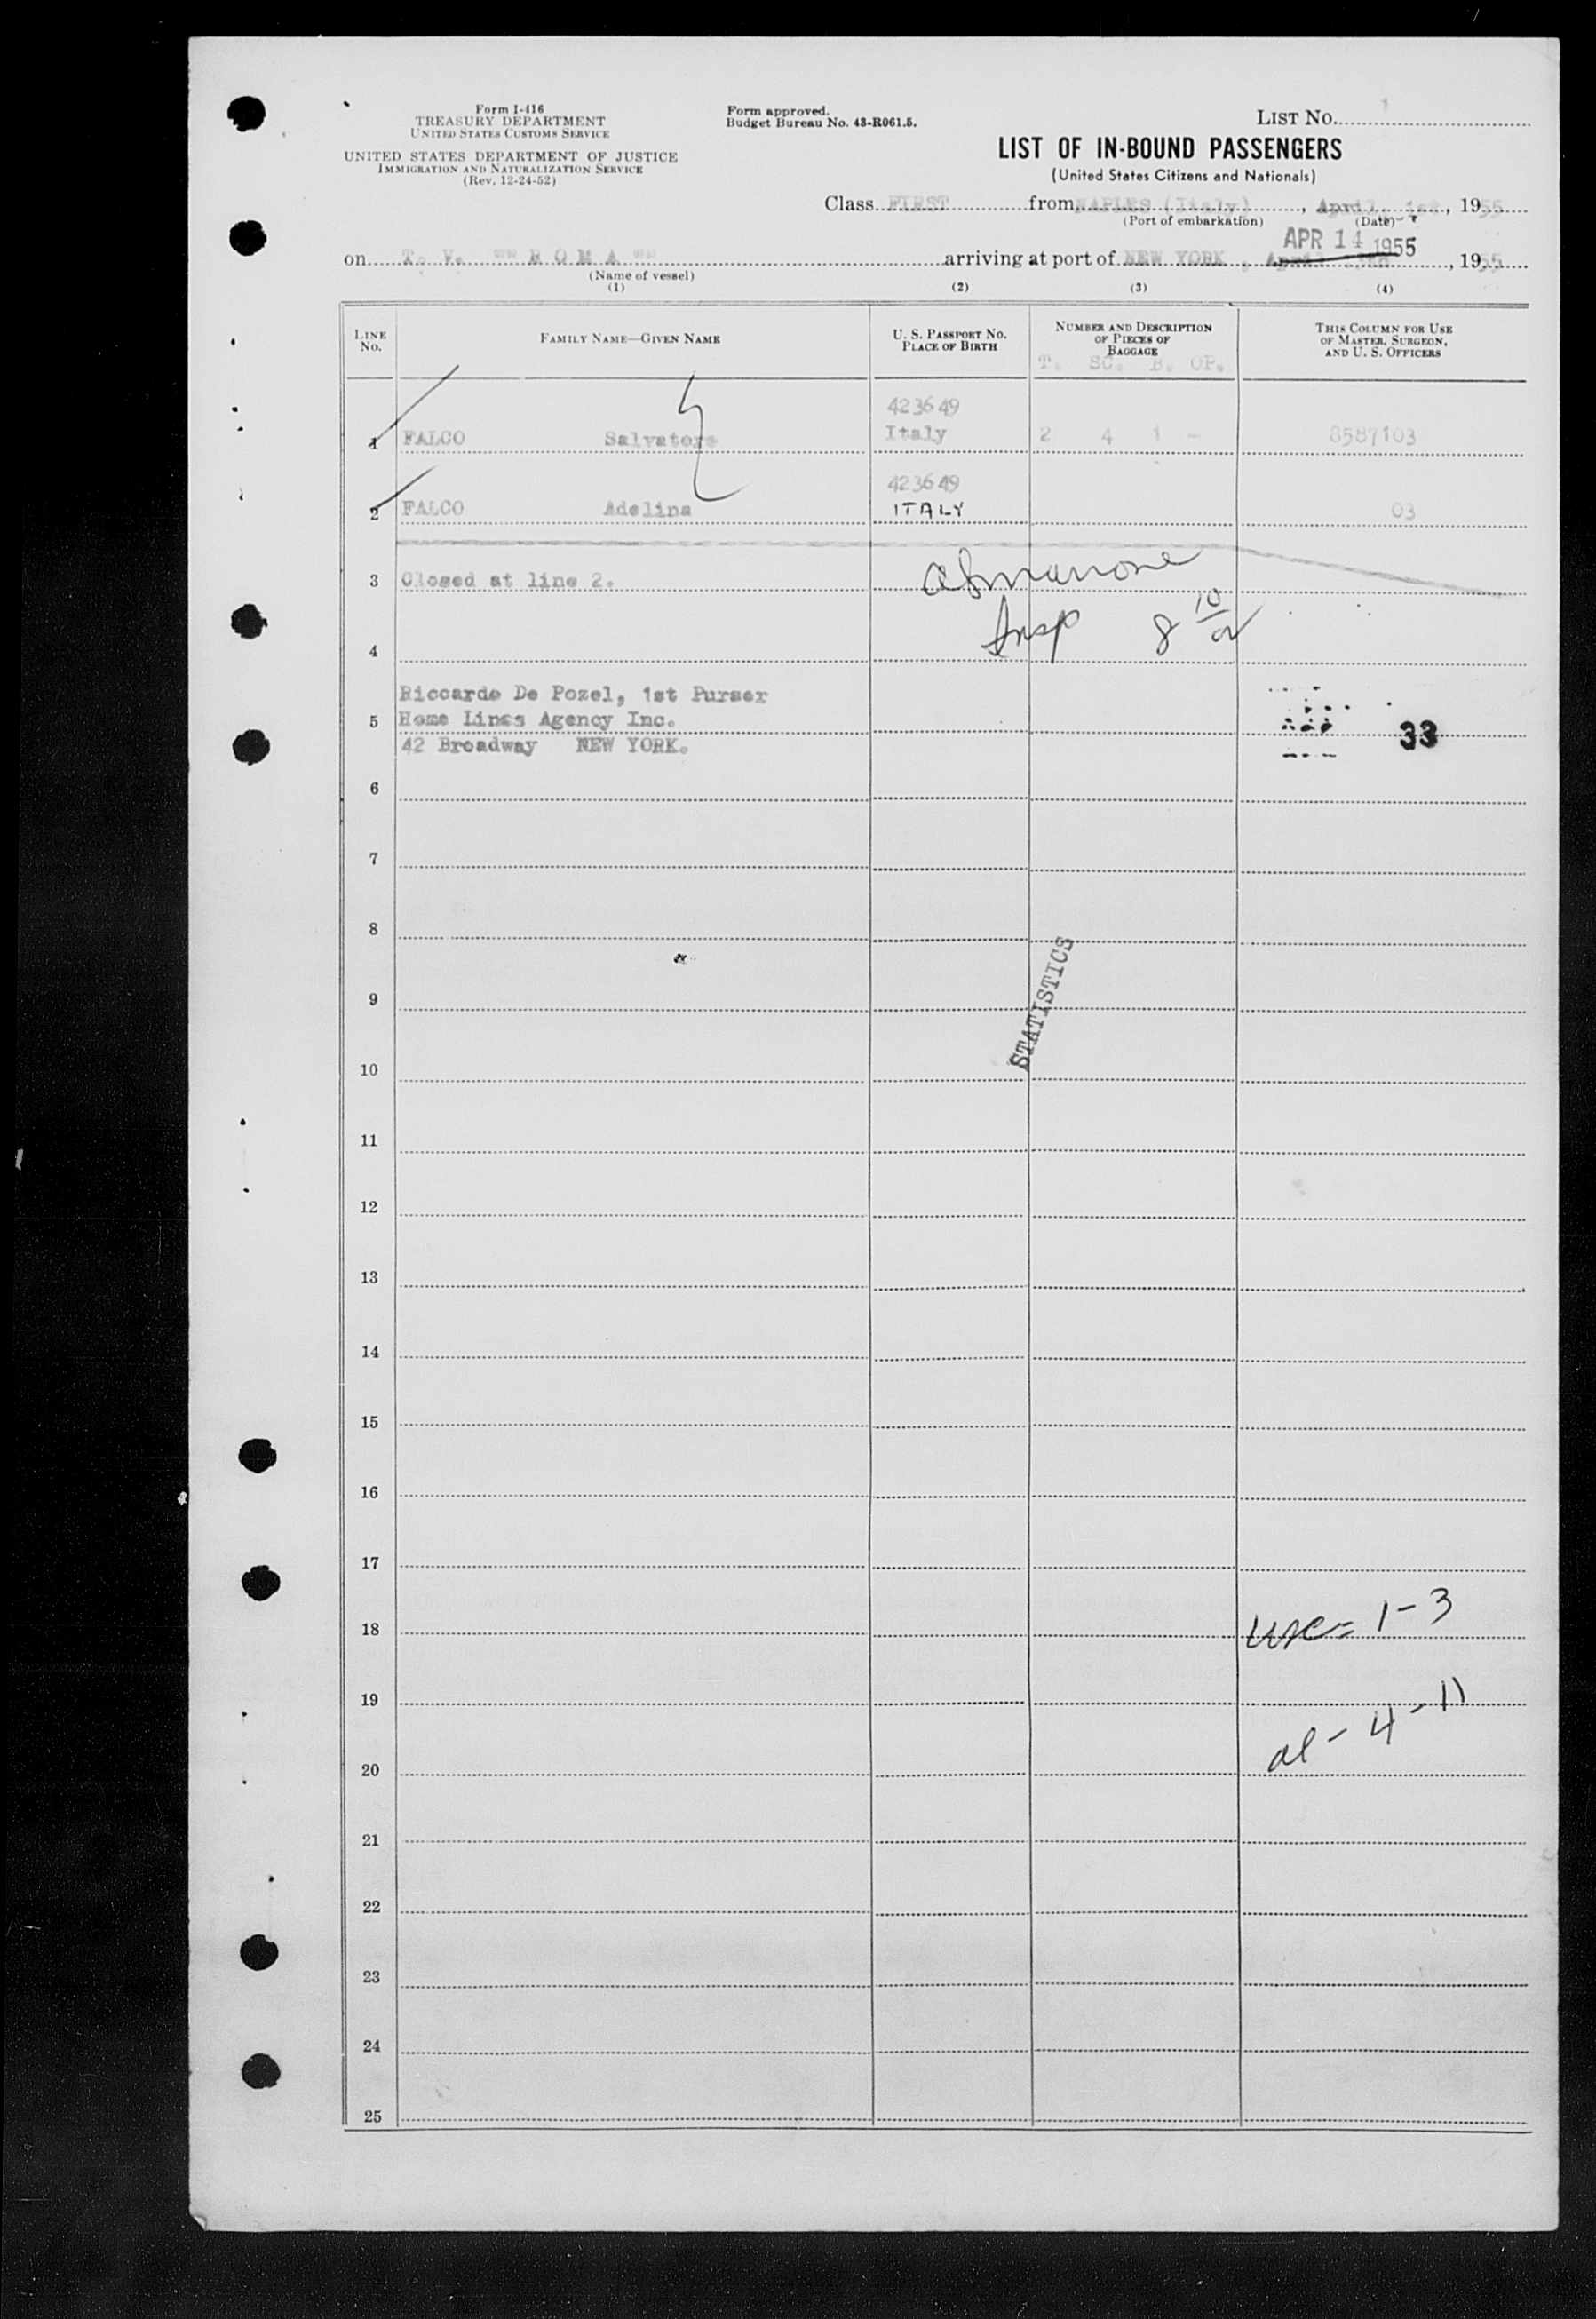 Form I-416
TREASURY DEPARTMENT
UNITED STATES CUSTOMS SERVICE
UNITED STATES DEPARTMENT OF JUSTICE
IMMIGRATION AND NATURALIZATION SERVICE
(Rev. 12-24-52)
Form approved.
Budget Bureau No. 43-R061.5.
LIST NO.
LIST OF IN-BOUND PASSENGERS
(United States Citizens and Nationals)
Class FIRST from NAPLES (Italy), April 1st, 1955
(Port of embarkation) (Date)
APR 14 1955
on T. V. "" R O M A "" arriving at port of NEW YORK, April, 1955
(Name of vessel)
(1) (2) (3) (4)
LINE NO. FAMILY NAME—GIVEN NAME U. S. PASSPORT NO. PLACE OF BIRTH NUMBER AND DESCRIPTION OF PIECES OF BAGGAGE THIS COLUMN FOR USE OF MASTER, SURGEON, AND U. S. OFFICERS
T. SC. B. OP.
423649
1 FALCO Salvatore Italy 2 4 1 - 8587103
423649
2 FALCO Adelina ITALY 03
3 Closed at line 2.
Insp 8 10
4
Riccardo De Pozel, 1st Purser
5 Home Lines Agency Inc. 33
42 Broadway NEW YORK.
6
7
8
STATISTICS
9
10
11
12
13
14
15
16
17
18 usc = 1-3
19
al - 4-11
20
21
22
23
24
25